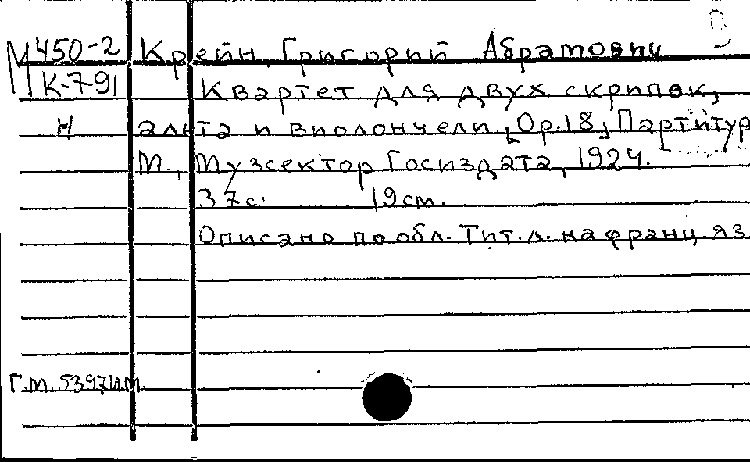 М 450-2 Крейн, Григорий Абрамович
К-791 Квартет для двух скрипок,
н альта и виолончели, Ор.18, Партитур
М., Музсектор Госиздата, 1924.
37с. 19см.
Описано по обл. Тит.л. на франц яз
Г.М. 5397